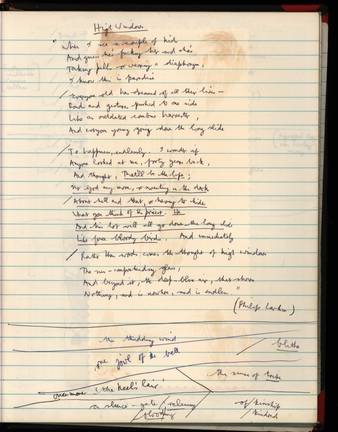 High Windows
"When I see a couple of kids
And guess he's fucking her and she's
Taking pills or wearing a diaphragm,
I know this is paradise
Everyone old has dreamed of all their lives —
Bonds and gestures pushed to one side
Like an outdated combine harvester,
And everyone young going down the long slide
To happiness, endlessly. I wonder if
Anyone looked at me, forty years back,
And thought, That'll be the life;
No God any more, or sweating in the dark
About hell and that, or having to hide
What you think of the priest. He
And his lot will all go down the long slide
Like free bloody birds. And immediately
Rather than words comes the thought of high windows
The sun-comprehending glass,
And beyond it, the deep blue air, that shows
Nothing, and is nowhere, and is endless"
(Philip Larkin)
the wind
one of the bell
the of
once more the
a silence -
of kinship